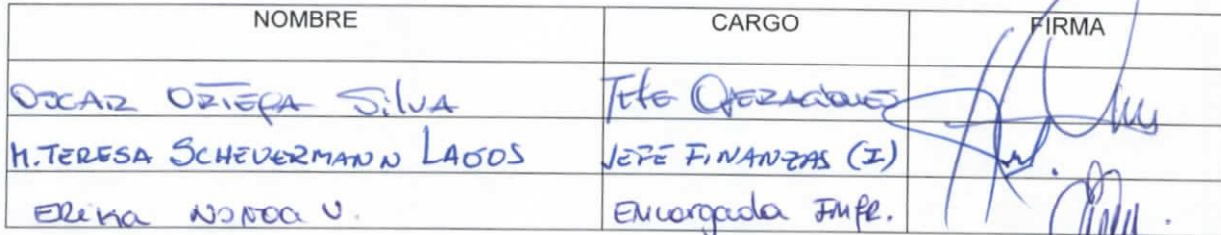 NOMBRE CARGO FIRMA
OSCAR ORTEGA SilVA Jefe OPERACIONES
M. TERESA SCHEUERMANN LAGOS JEFE FINANZAS (I)
ERIKA V. Encargada